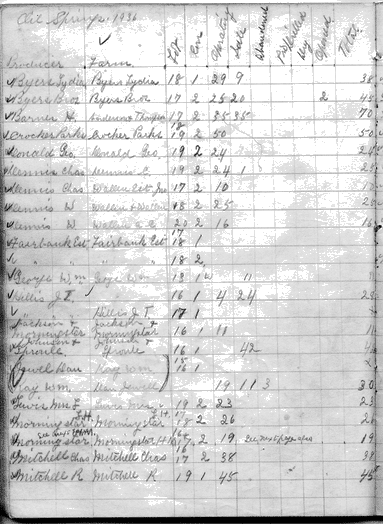 Oil Springs 1936
Producer Farm Lot Con Operating Idle Abandoned Drilled Dry Total
Byers Lydia Byers Lydia 18 1 29 9 38
Byers Bros Byers Bros 17 2 25 20 2 45
Barner H. Anderson & Thompson 17 2 35 35 70
Crocker Parks Crocker Parks 19 2 50 50
Ronald Geo. Ronald Geo. 19 2 24
Dennis Chas Dennis C. 19 2 24 1 25
Dennis Chas 17 2 10 10
Dennis W Wallen & Wallen 18 2 25
Dennis W 20 2 16 16
17
Fairbank Est Fairbank Est 18 1
" " " 18 2
George Wm George Wm 13 1 W 11
Hillis J. T. 16 1 4 24 28
Hillis J. T 17 1
Jackson & Jackson &
Morningstar Morningstar 16 1 11 11
Johnson & Johnson &
Sproule Sproule 16 1 42
15
Powell Dan Kay Wm 16 1
Kay Wm Dan Powell 19 11 3 30
Lewis Mrs L Lewis Mrs L 19 2 23 23
Morningstar Morningstar 18 2 26
Morningstar Morningstar H 17 2 19 See next page also 19
16
Mitchell Chas Mitchell Chas 17 2 38 38
Mitchell R Mitchell R 19 1 45 45